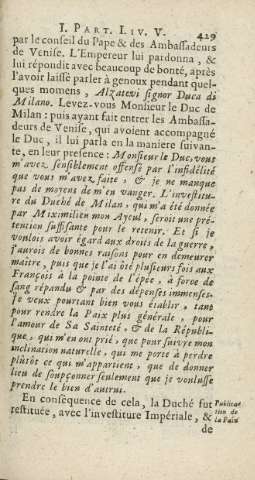 I. PART. LIV. V. 429
par le conseil du Pape & des Ambassadeurs
de Venise. L'Empereur lui pardonna, &
lui répondit avec beaucoup de bonté, après
l'avoir laissé parler à genoux pendant quel-
ques momens, Alzatevi signor Duca di
Milano. Levez-vous Monsieur le Duc de
Milan: puis ayant fait entrer les Ambassa-
deurs de Venise, qui avoient accompagné
le Duc, il lui parla en la maniere suivan-
te, en leur presence: Monsieur le Duc, vous
m'avez, sensiblement offensé par l'infidelité
que vous m'avez faite, & je ne manque
pas de moyens de m'en vanger. L'investitu-
re du Duché de Milan, qui m'a été donnée
par Miximilien mon Ayeul, seroit une pré-
tention suffisante pour le retenir. Et si je
voulois avoir égard aux droits de la guerre,
j'aurois de bonnes raisons pour en demeurer
maitre, puis que je l'ai ôté plusieurs fois aux
François à la pointe de l'épée, à force de
sang répandu & par des dépenses immenses.
Je veux pourtant bien vous établir, tant
pour rendre la Paix plus générale, pour
l'amour de Sa Sainteté, & de la Républi-
que, qui m'en ont prié, que pour suivre mon
inclination naturelle, qui me porte à perdre
plûtôt ce qui m'appartient, que de donner
lieu de soupçonner seulement que je voulusse
prendre le bien d'autrui.
En conséquence de cela, la Duché fut
restituée, avec l'investiture Impériale, &
de
Publica-
tion de
la Paix